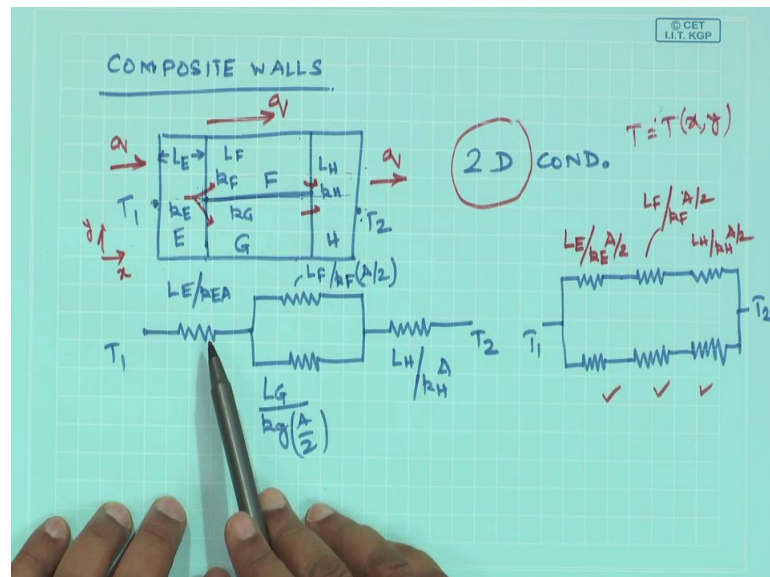 © CET
I.I.T. KGP
COMPOSITE WALLS
q
q
LE
LF
kF
F
LH
kH
q
T1
kE
kG
T2
E
G
H
y
x
2D COND.
T ≡ T(x,y)
LE/kEA
LF/kF(A/2)
T1
T2
LG/kg(A/2)
LH/kHA
LE/kE A/2
LF/kF A/2
LH/kH A/2
T1
T2